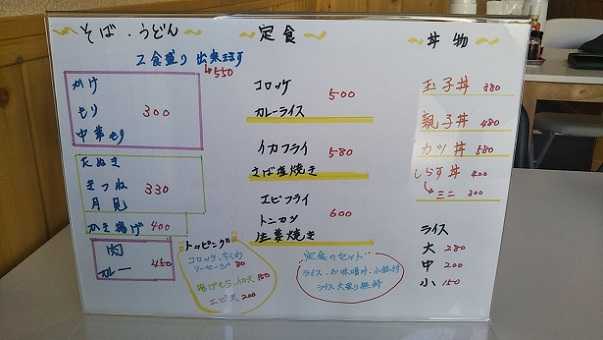 そば・うどん
2食盛り 出来ます
550
かけ
もり 300
中華もり
たぬき
きつね 330
月見
かき揚げ 400
肉
カレー 450
トッピング
コロッケ、ちくわ
ソーセージ 80
揚げもち、イカ天 150
エビ天 200
定食
コロッケ 500
カレーライス
イカフライ 580
さば塩焼き
エビフライ
トンカツ 600
生姜焼き
定食のセット
ライス、お味噌汁、小鉢付
ライス大盛り無料
丼物
玉子丼 380
親子丼 480
カツ丼 580
しらす丼 400
ミニ 300
ライス
大 250
中 200
小 150